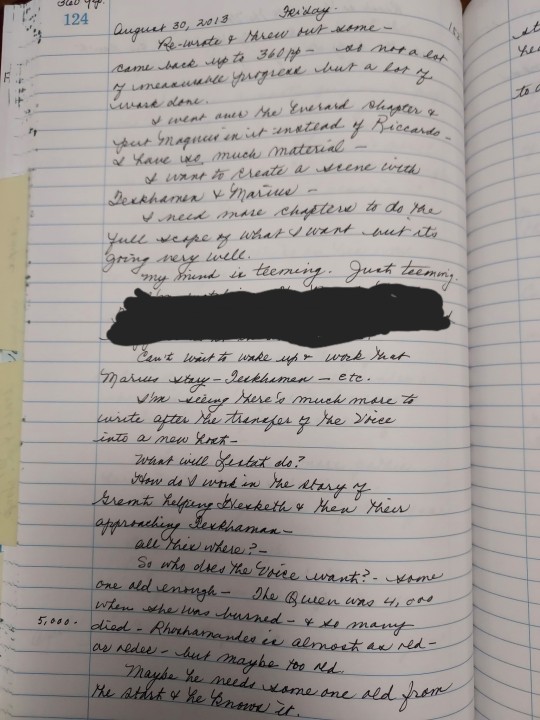 360 pp.
124
August 30, 2013 Friday.
Re-wrote & threw out some -
came back up to 360 pp - so not a lot
of measurable progress but a lot of
work done.
I went over the Everard chapter &
put Magnus in it instead of Riccardo -
I have so much material -
I want to create a scene with
Teskhamen & Marius -
I need more chapters to do the
full scope of what I want but its
going very well.
my mind is teeming. Just teeming.
Can't wait to wake up & work that
Marius story - Teskhamen - etc.
I'm seeing there's much more to
write after the transfer of the Voice
into a new host -
What will Lestat do?
How do I work in the story of
Gremt helping Hesketh & then their
approaching Teskhaman -
all this where? -
So who does the Voice want? - some
one old enough - The Queen was 4,000
when she was burned - & so many
5,000 -
died - Rhoshamandes is almost as old -
or older - but maybe too old.
Maybe he needs some one old from
the start & he knows it.